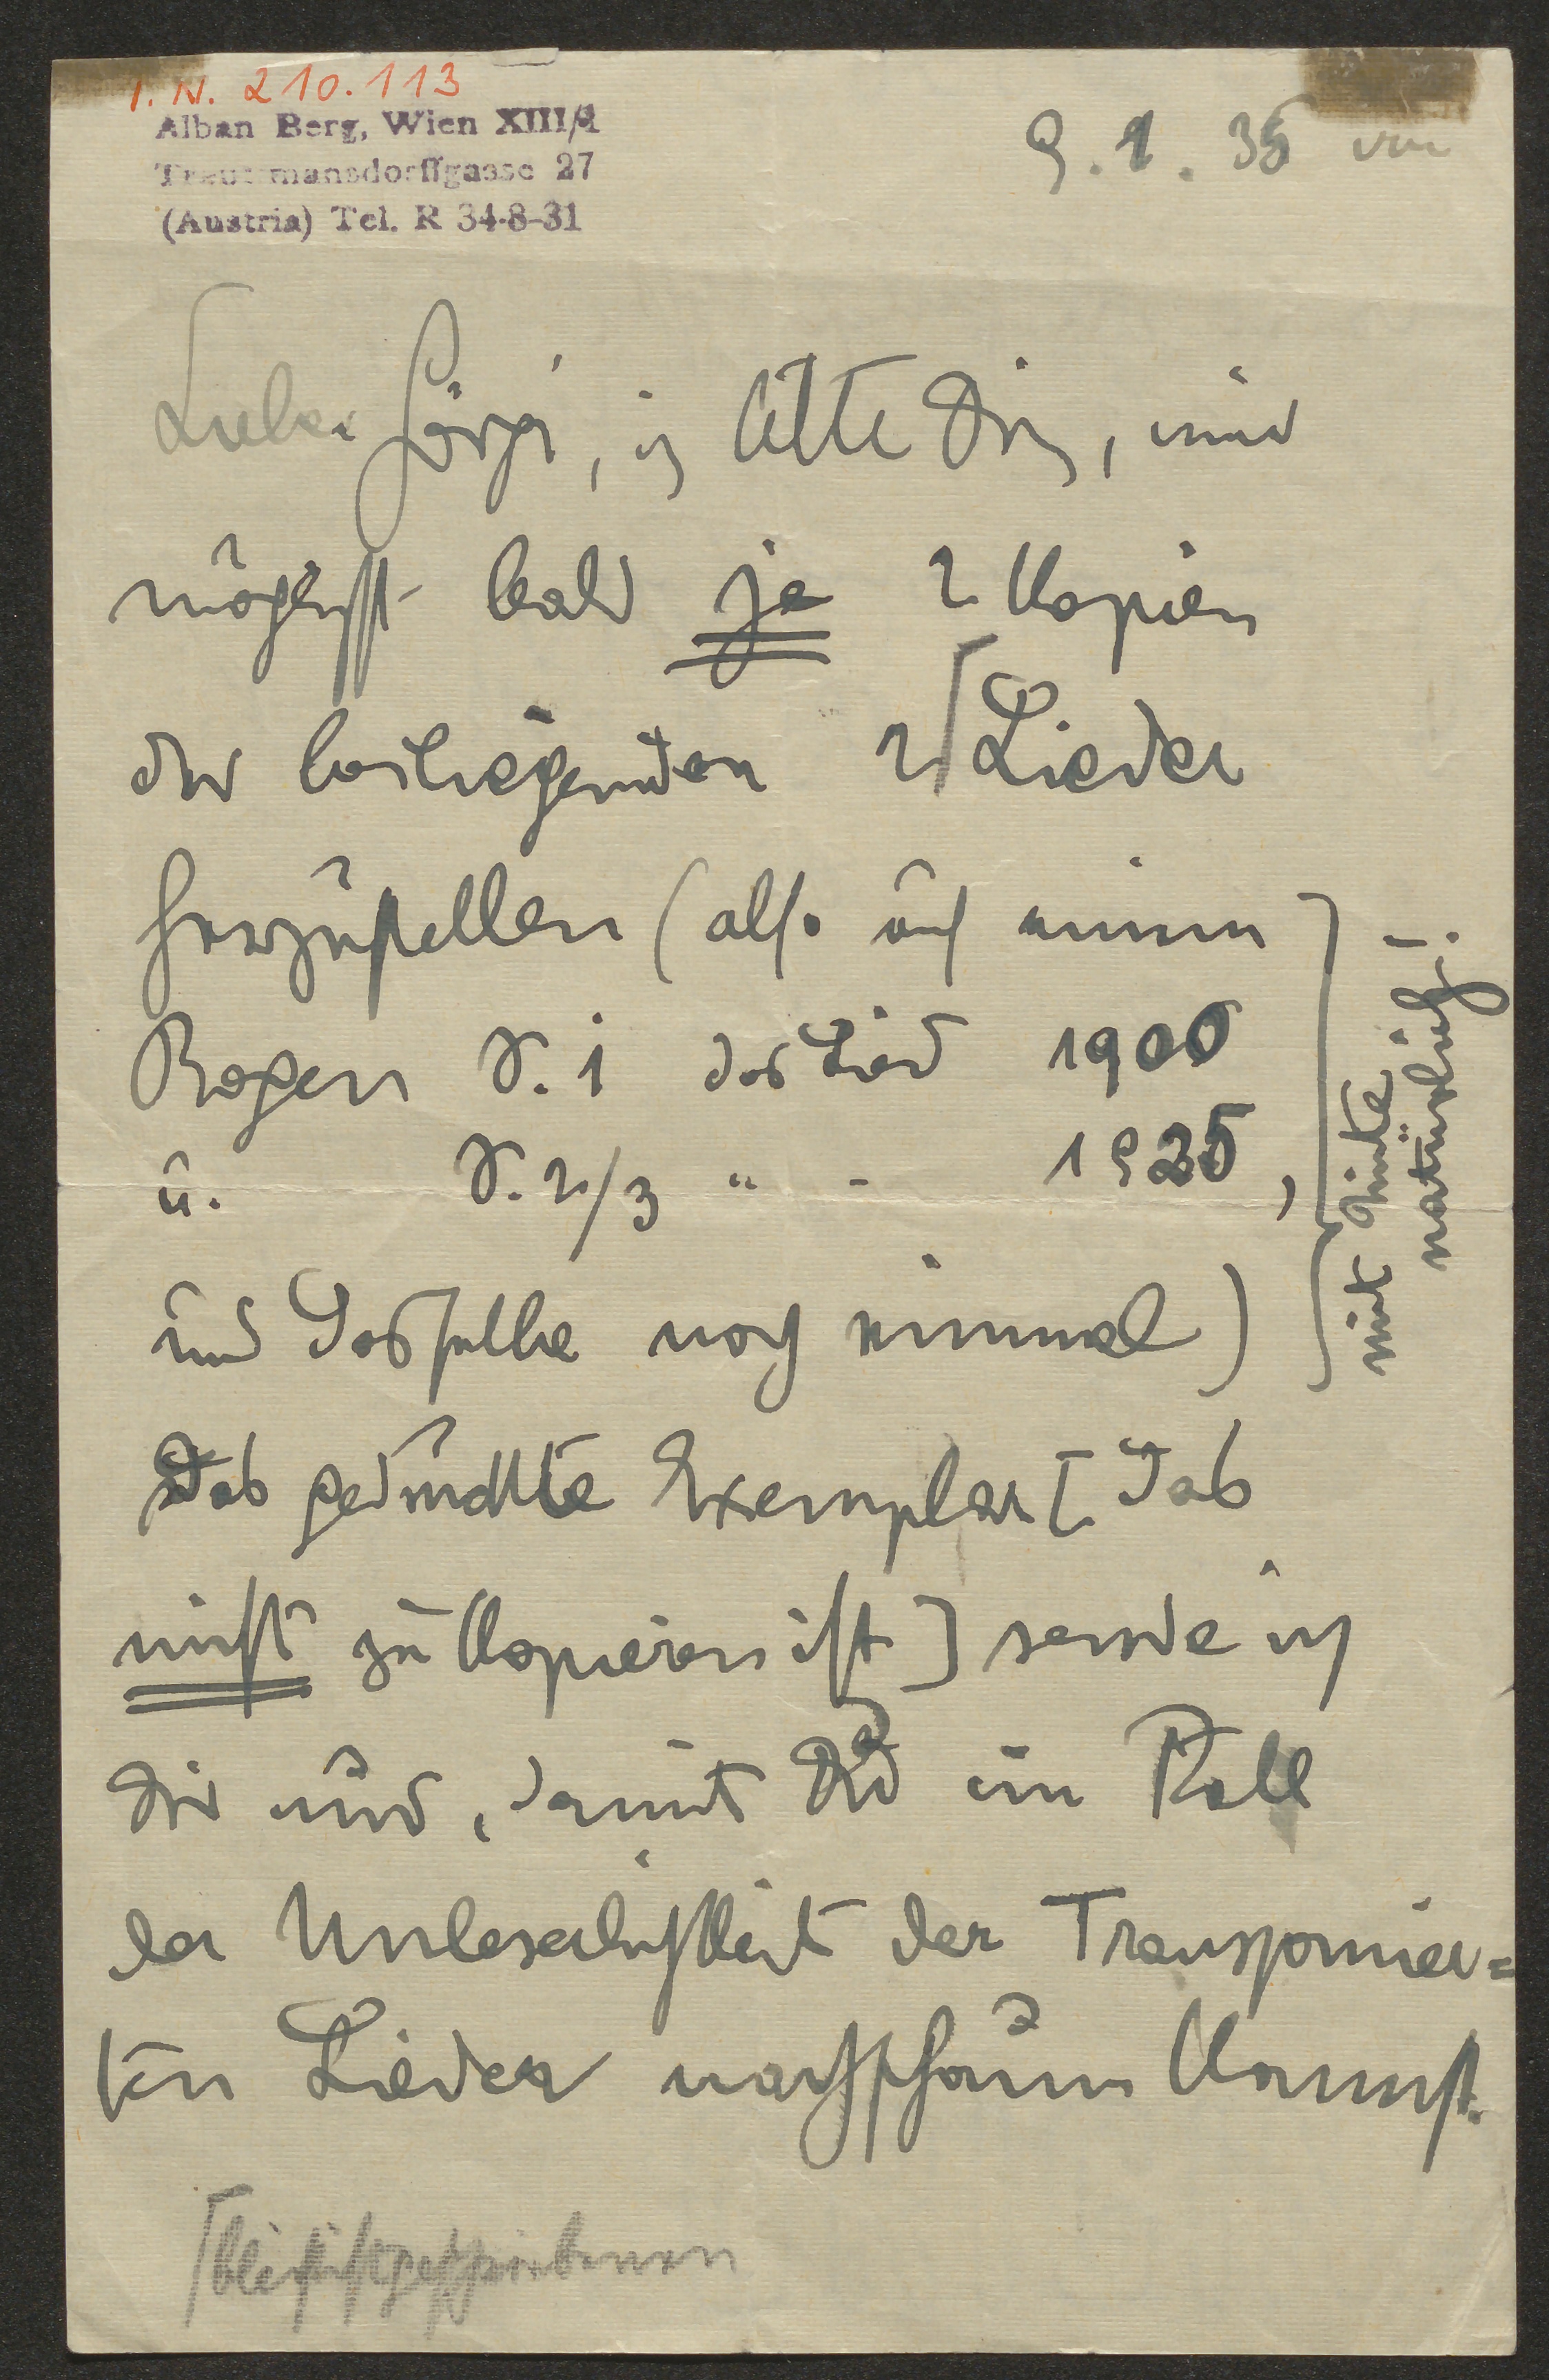 I. N. 210.113
Alban Berg, Wien XIII/1
Trauttmansdorffgasse 27
(Austria) Tel. R 34-8-31
9. 1. 35
Lieber ich bitte Dich, mir
möglichst bald je 2 Kopien
der beiliegenden 2 ⌈ Lieder
herzustellen (also auf einem
Bogen S. 1 das Lied 1900
u. S. 2/3 " - 1925,
und dasselbe noch einmal)
mit Tinte
natürlich!
Das gedruckte Exemplar [das
nicht zu kopieren ist] sende ich
Dir nur, damit Du im Fall
der Unleserlichkeit der Transponier=
ten Lieder nachschaun kannst.
⌈ bleistiftgeschriebenen